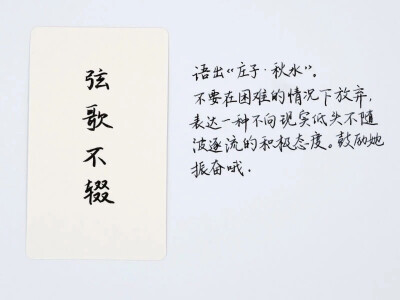 弦歌不辍
语出“庄子·秋水”。
不要在困难的情况下放弃,
表达一种不向现实低头不随
波逐流的积极态度。鼓励她
振奋哦.